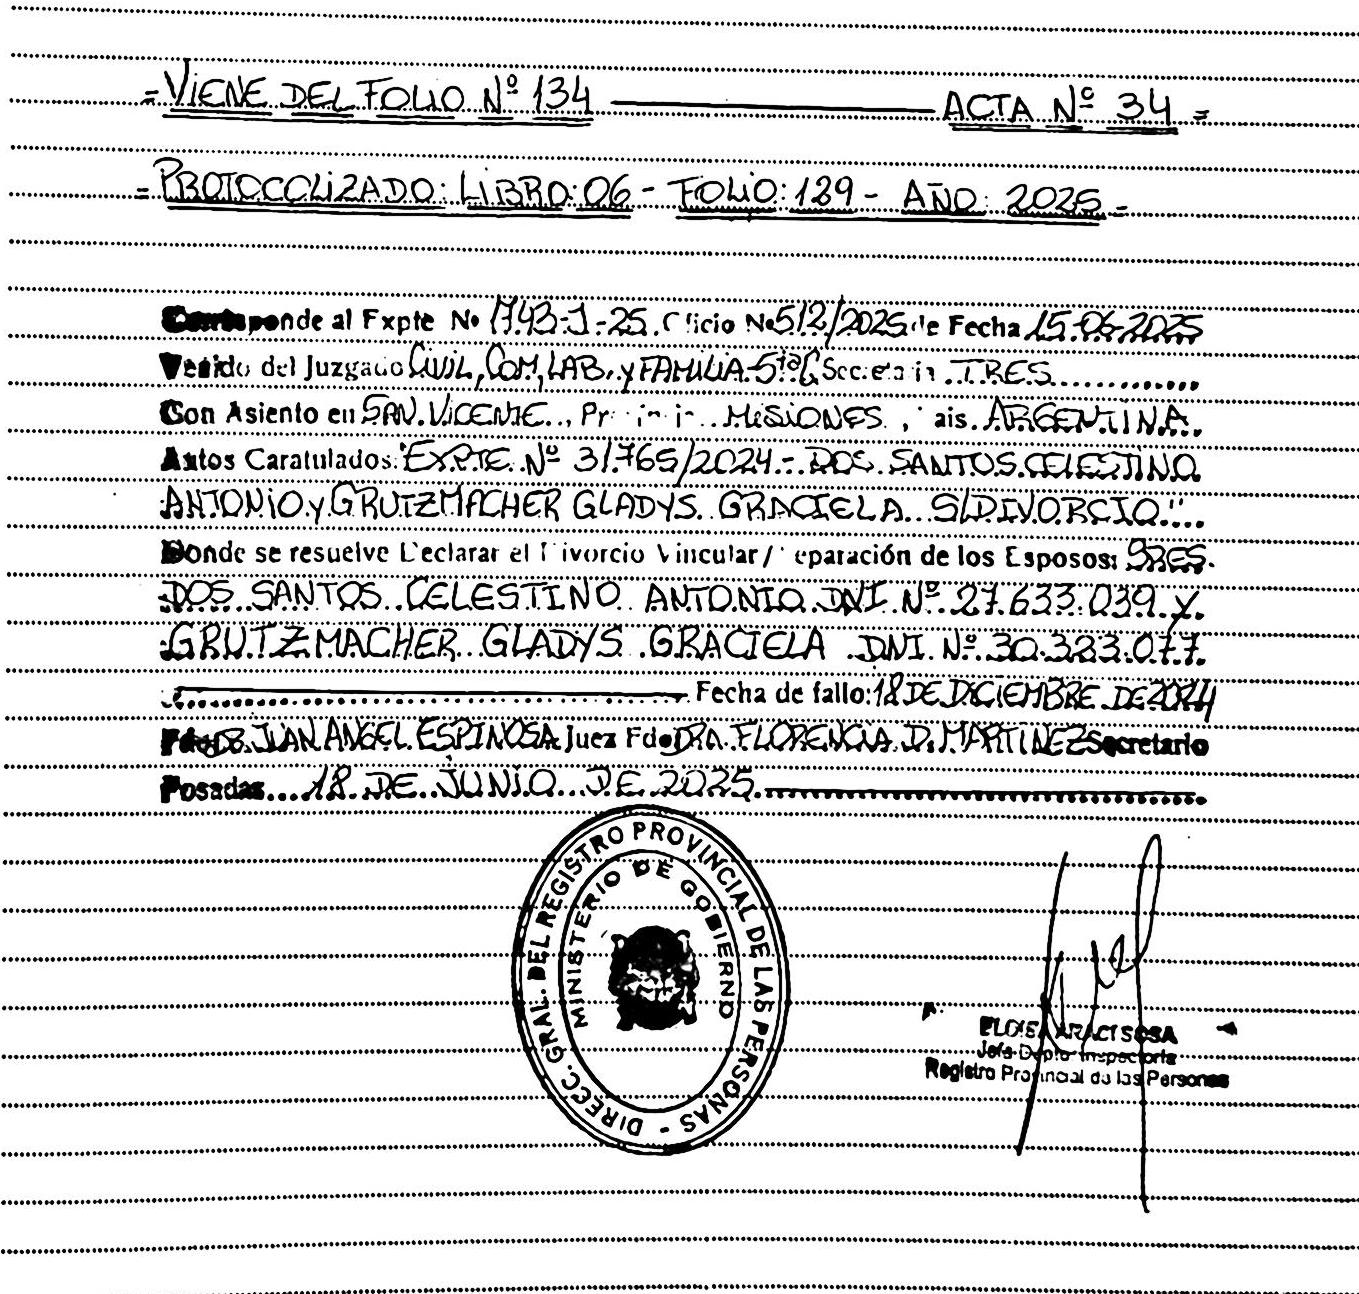 =VIENE DEL FOLIO Nº 134 ACTA Nº 34=
=PROTOCOLIZADO: LIBRO: 06 - FOLIO: 129 - AÑO: 2025=
Corresponde al Expte Nº 1743-J-25. Oficio Nº 512/2025 de Fecha 15-06-2025
Venido del Juzgado CIVIL, COM, LAB. y FAMILIA 5ta C Secretaria TRES
Con Asiento en SAN VICENTE, Provincia MISIONES, Pais ARGENTINA.
Autos Caratulados: "EXPTE. Nº 31765/2024 - DOS SANTOS CELESTINO
ANTONIO y GRUTZMACHER GLADYS GRACIELA S/DIVORCIO"
Donde se resuelve Declarar el Divorcio Vincular/Separación de los Esposos: SRES.
DOS SANTOS CELESTINO ANTONIO DNI Nº 27.633.039 y
GRUTZMACHER GLADYS GRACIELA DNI Nº 30.323.077.
Fecha de fallo: 18 DE DICIEMBRE DE 2024
Fdo DR. JUAN ANGEL ESPINOSA Juez Fdo DRA. FLORENCIA D. MARTINEZ Secretario
Posadas 18 DE JUNIO DE 2025.
DIRECC. GRAL. DEL REGISTRO PROVINCIAL DE LAS PERSONAS -
MINISTERIO DE GOBIERNO
ELOISA ARACI SOSA
Jefe Depto Inspectoria
Registro Provincial de las Personas